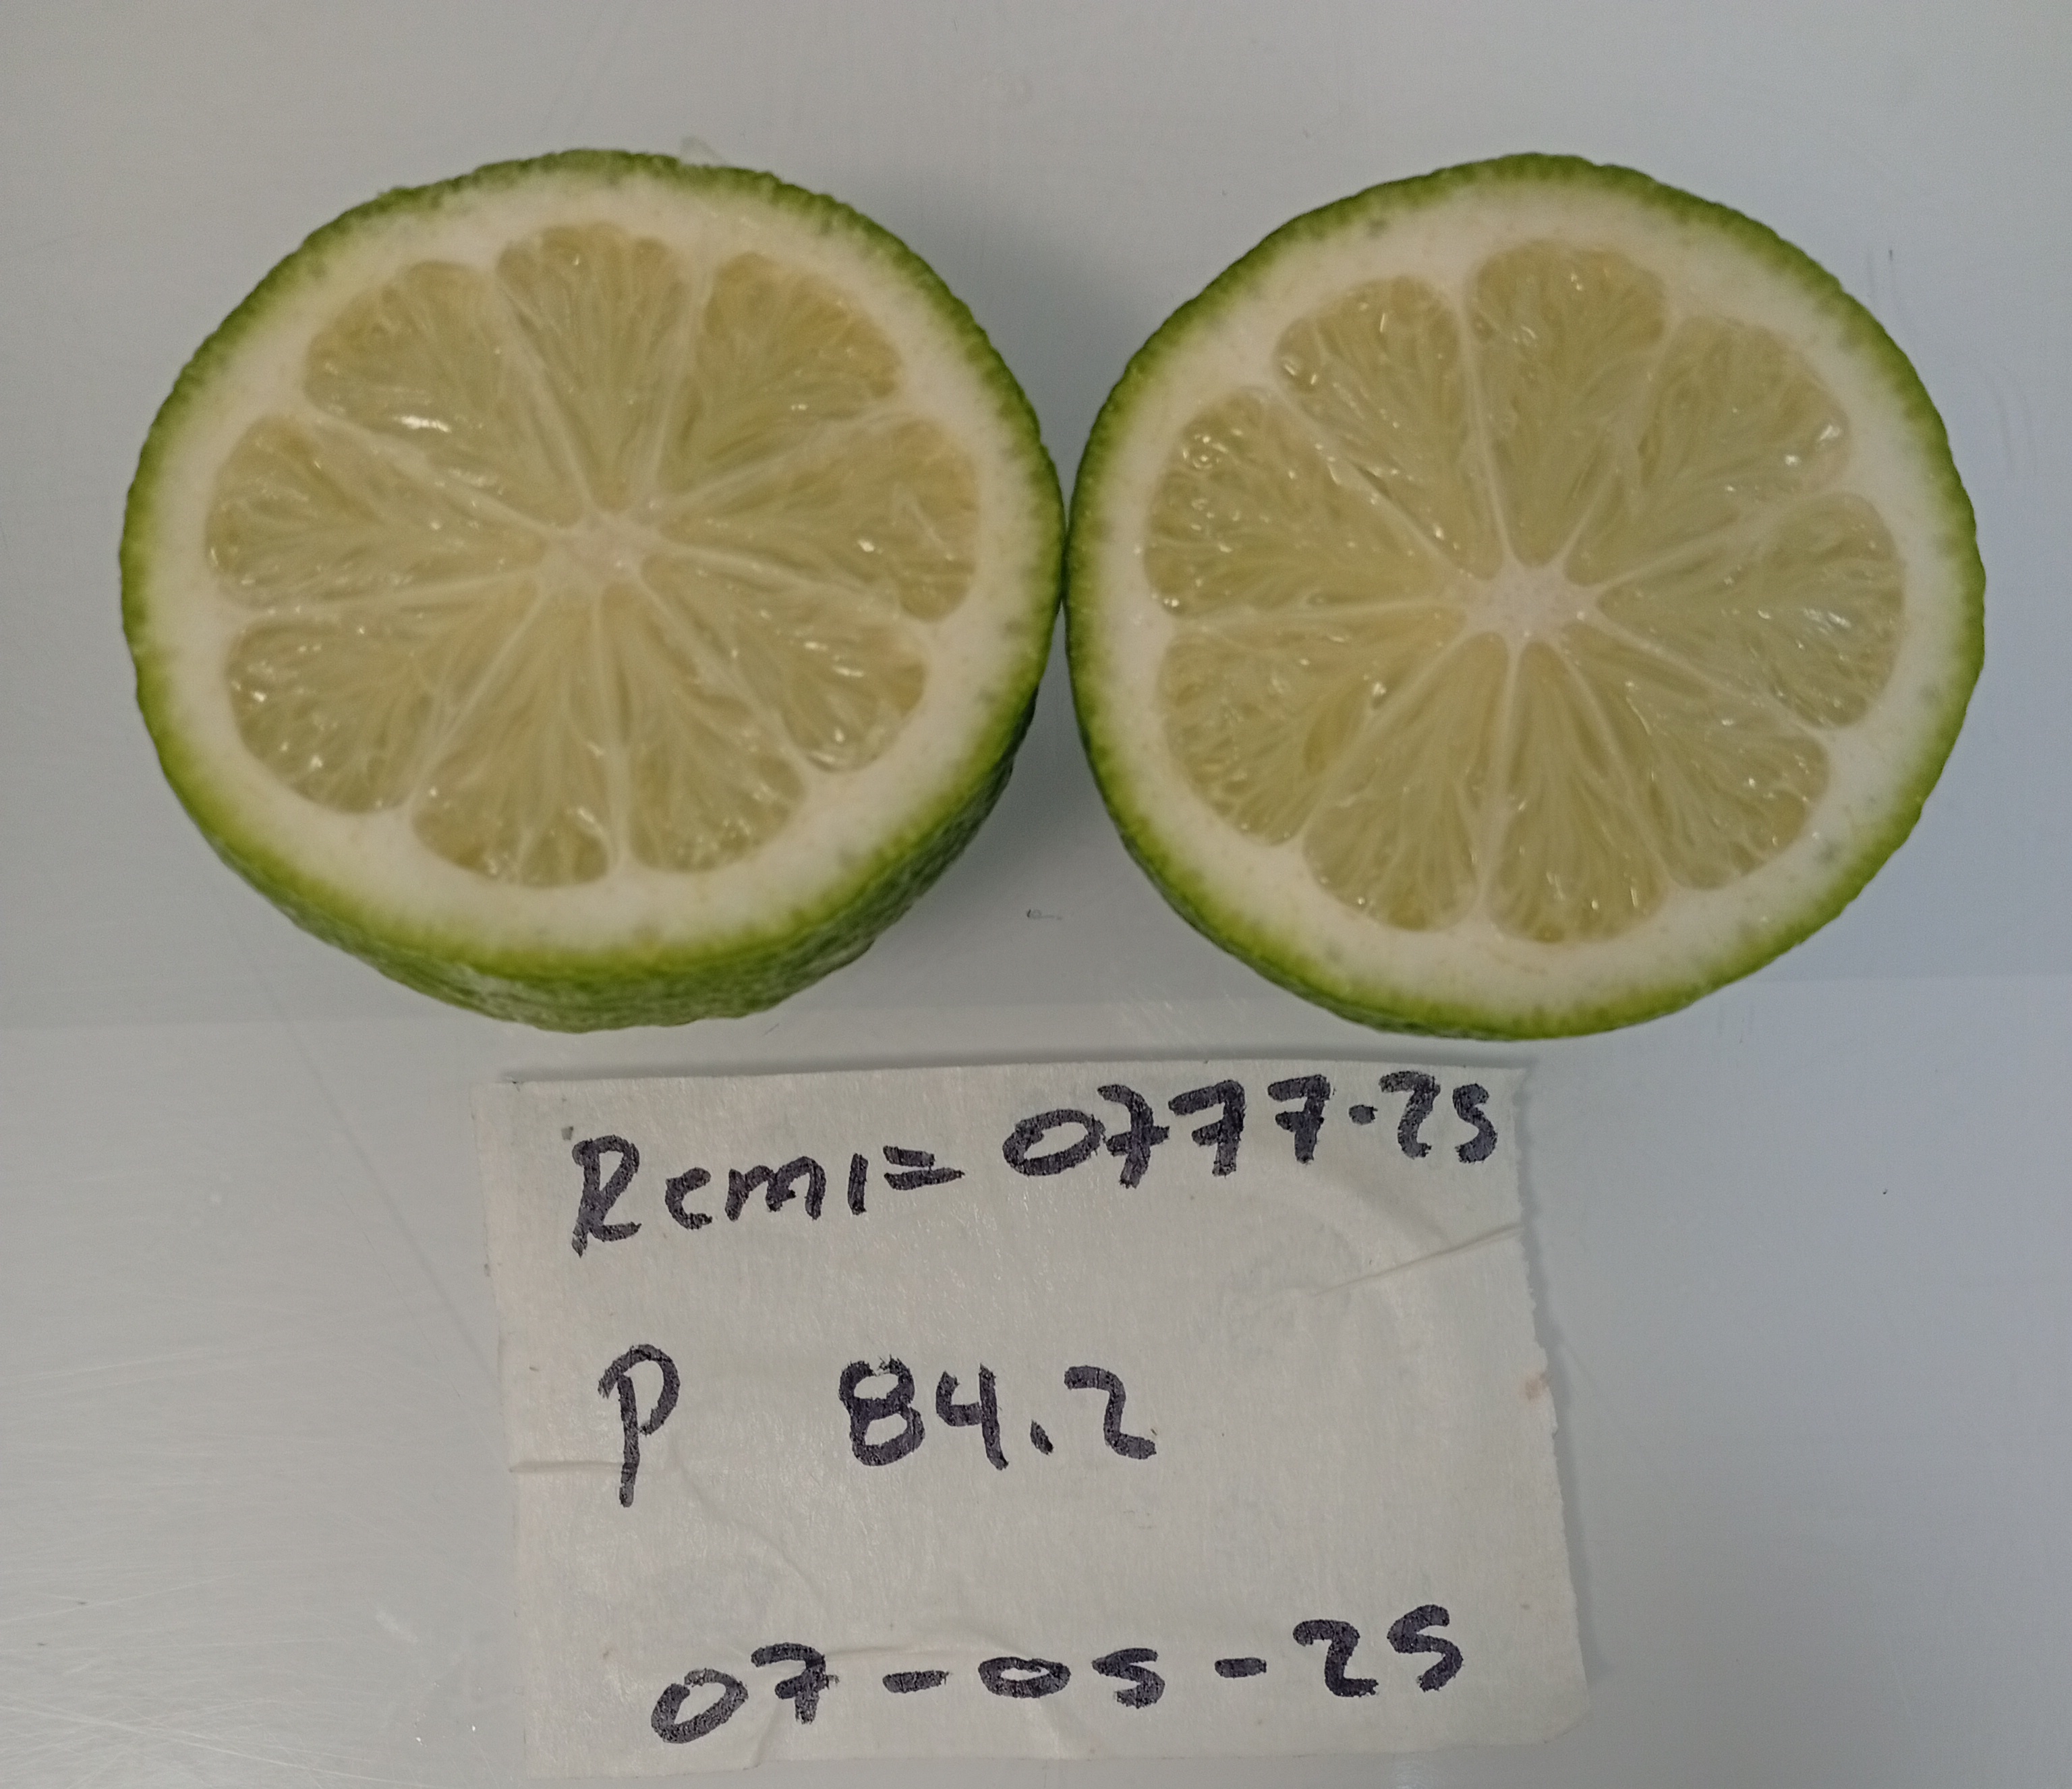 Remi= 0777-25
P 84.2
07-05-25